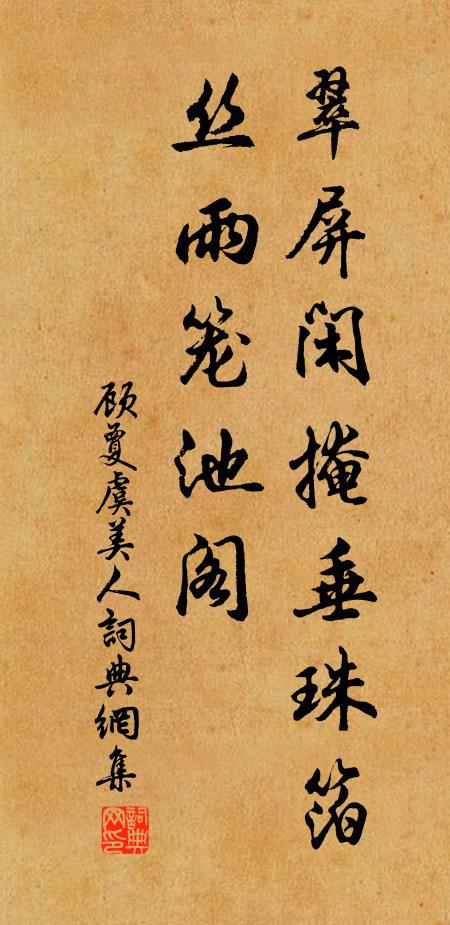 翠屏闲掩垂珠箔
丝雨笼池阁
顾夐虞美人詞典網集
詞典网印